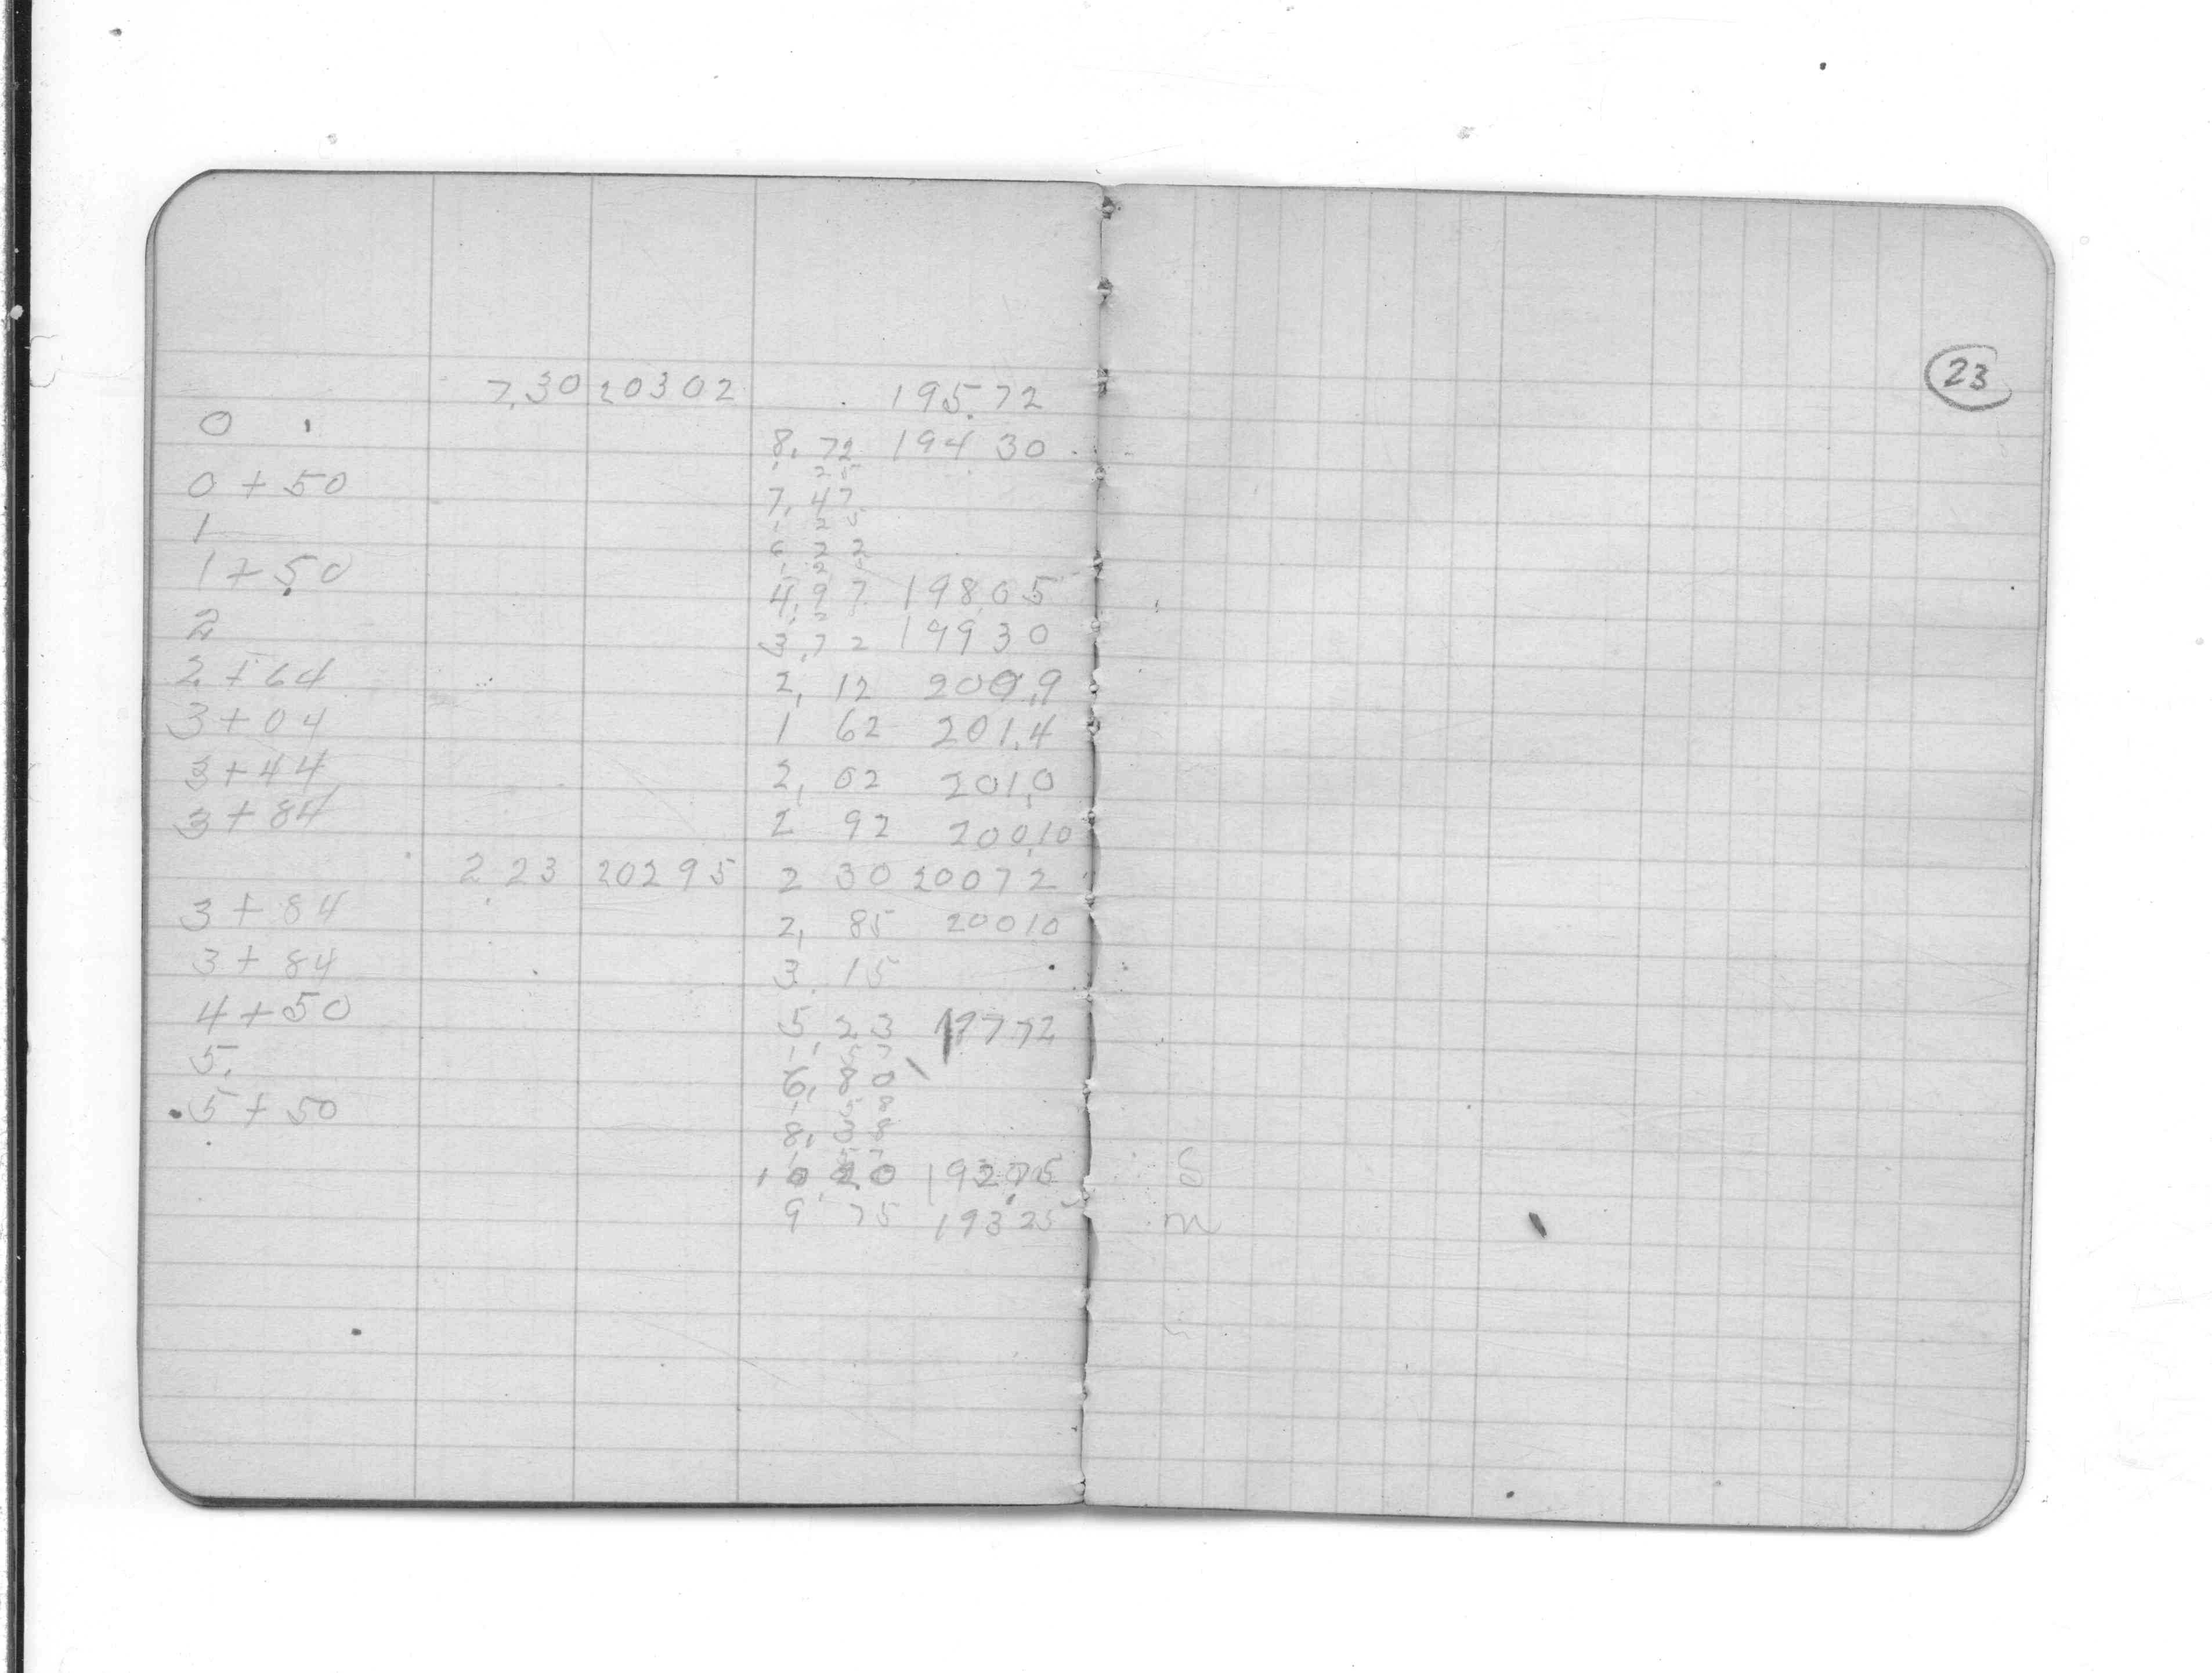 23
7.30 20302 195.72
0 8.72 194 30
25
0 + 50 7.47
1 25
1 6 22
1 + 50 4.97 198.05
2 3.72 199 30
2 + 64 2.12 200.9
3 + 04 1 62 201.4
3 + 44 2.02 201.0
3 + 84 2 92 200.10
2 23 20295 2 30 20072
3 + 84 2.85 20010
3 + 84 3.15
4 + 50 5.23 19772
1.57
5. 6.80
1 58
5 + 50 8.38
10.20 192.75 S
9 75 193.25 m